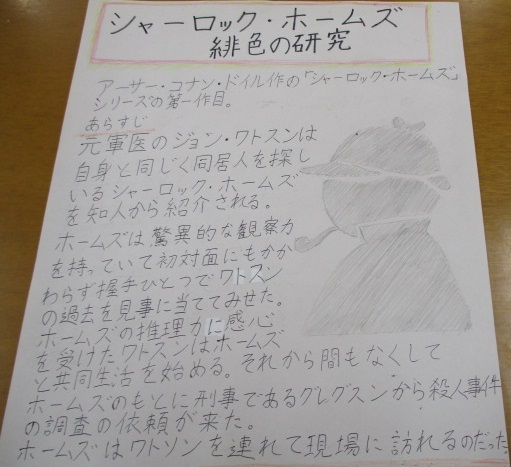 シャーロック・ホームズ
緋色の研究
アーサー・コナン・ドイル作の「シャーロック・ホームズ」
シリーズの第一作目。
あらすじ
元軍医のジョン・ワトスンは
自身と同じく同居人を探し
いるシャーロック・ホームズ
を知人から紹介される。
ホームズは驚異的な観察力
を持っていて初対面にもかか
わらず握手ひとつでワトスン
の過去を見事に当ててみせた。
ホームズの推理力に感心
を受けたワトスンはホームズ
と共同生活を始める。それから間もなくして
ホームズのもとに刑事であるグレグスンから殺人事件
の調査の依頼が来た。
ホームズはワトソンを連れて現場に訪れるのだった